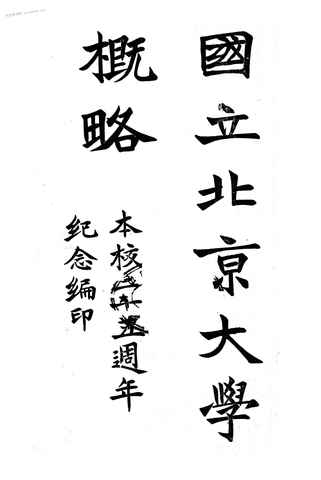 國立北京大學
概略
本校週年
紀念編印